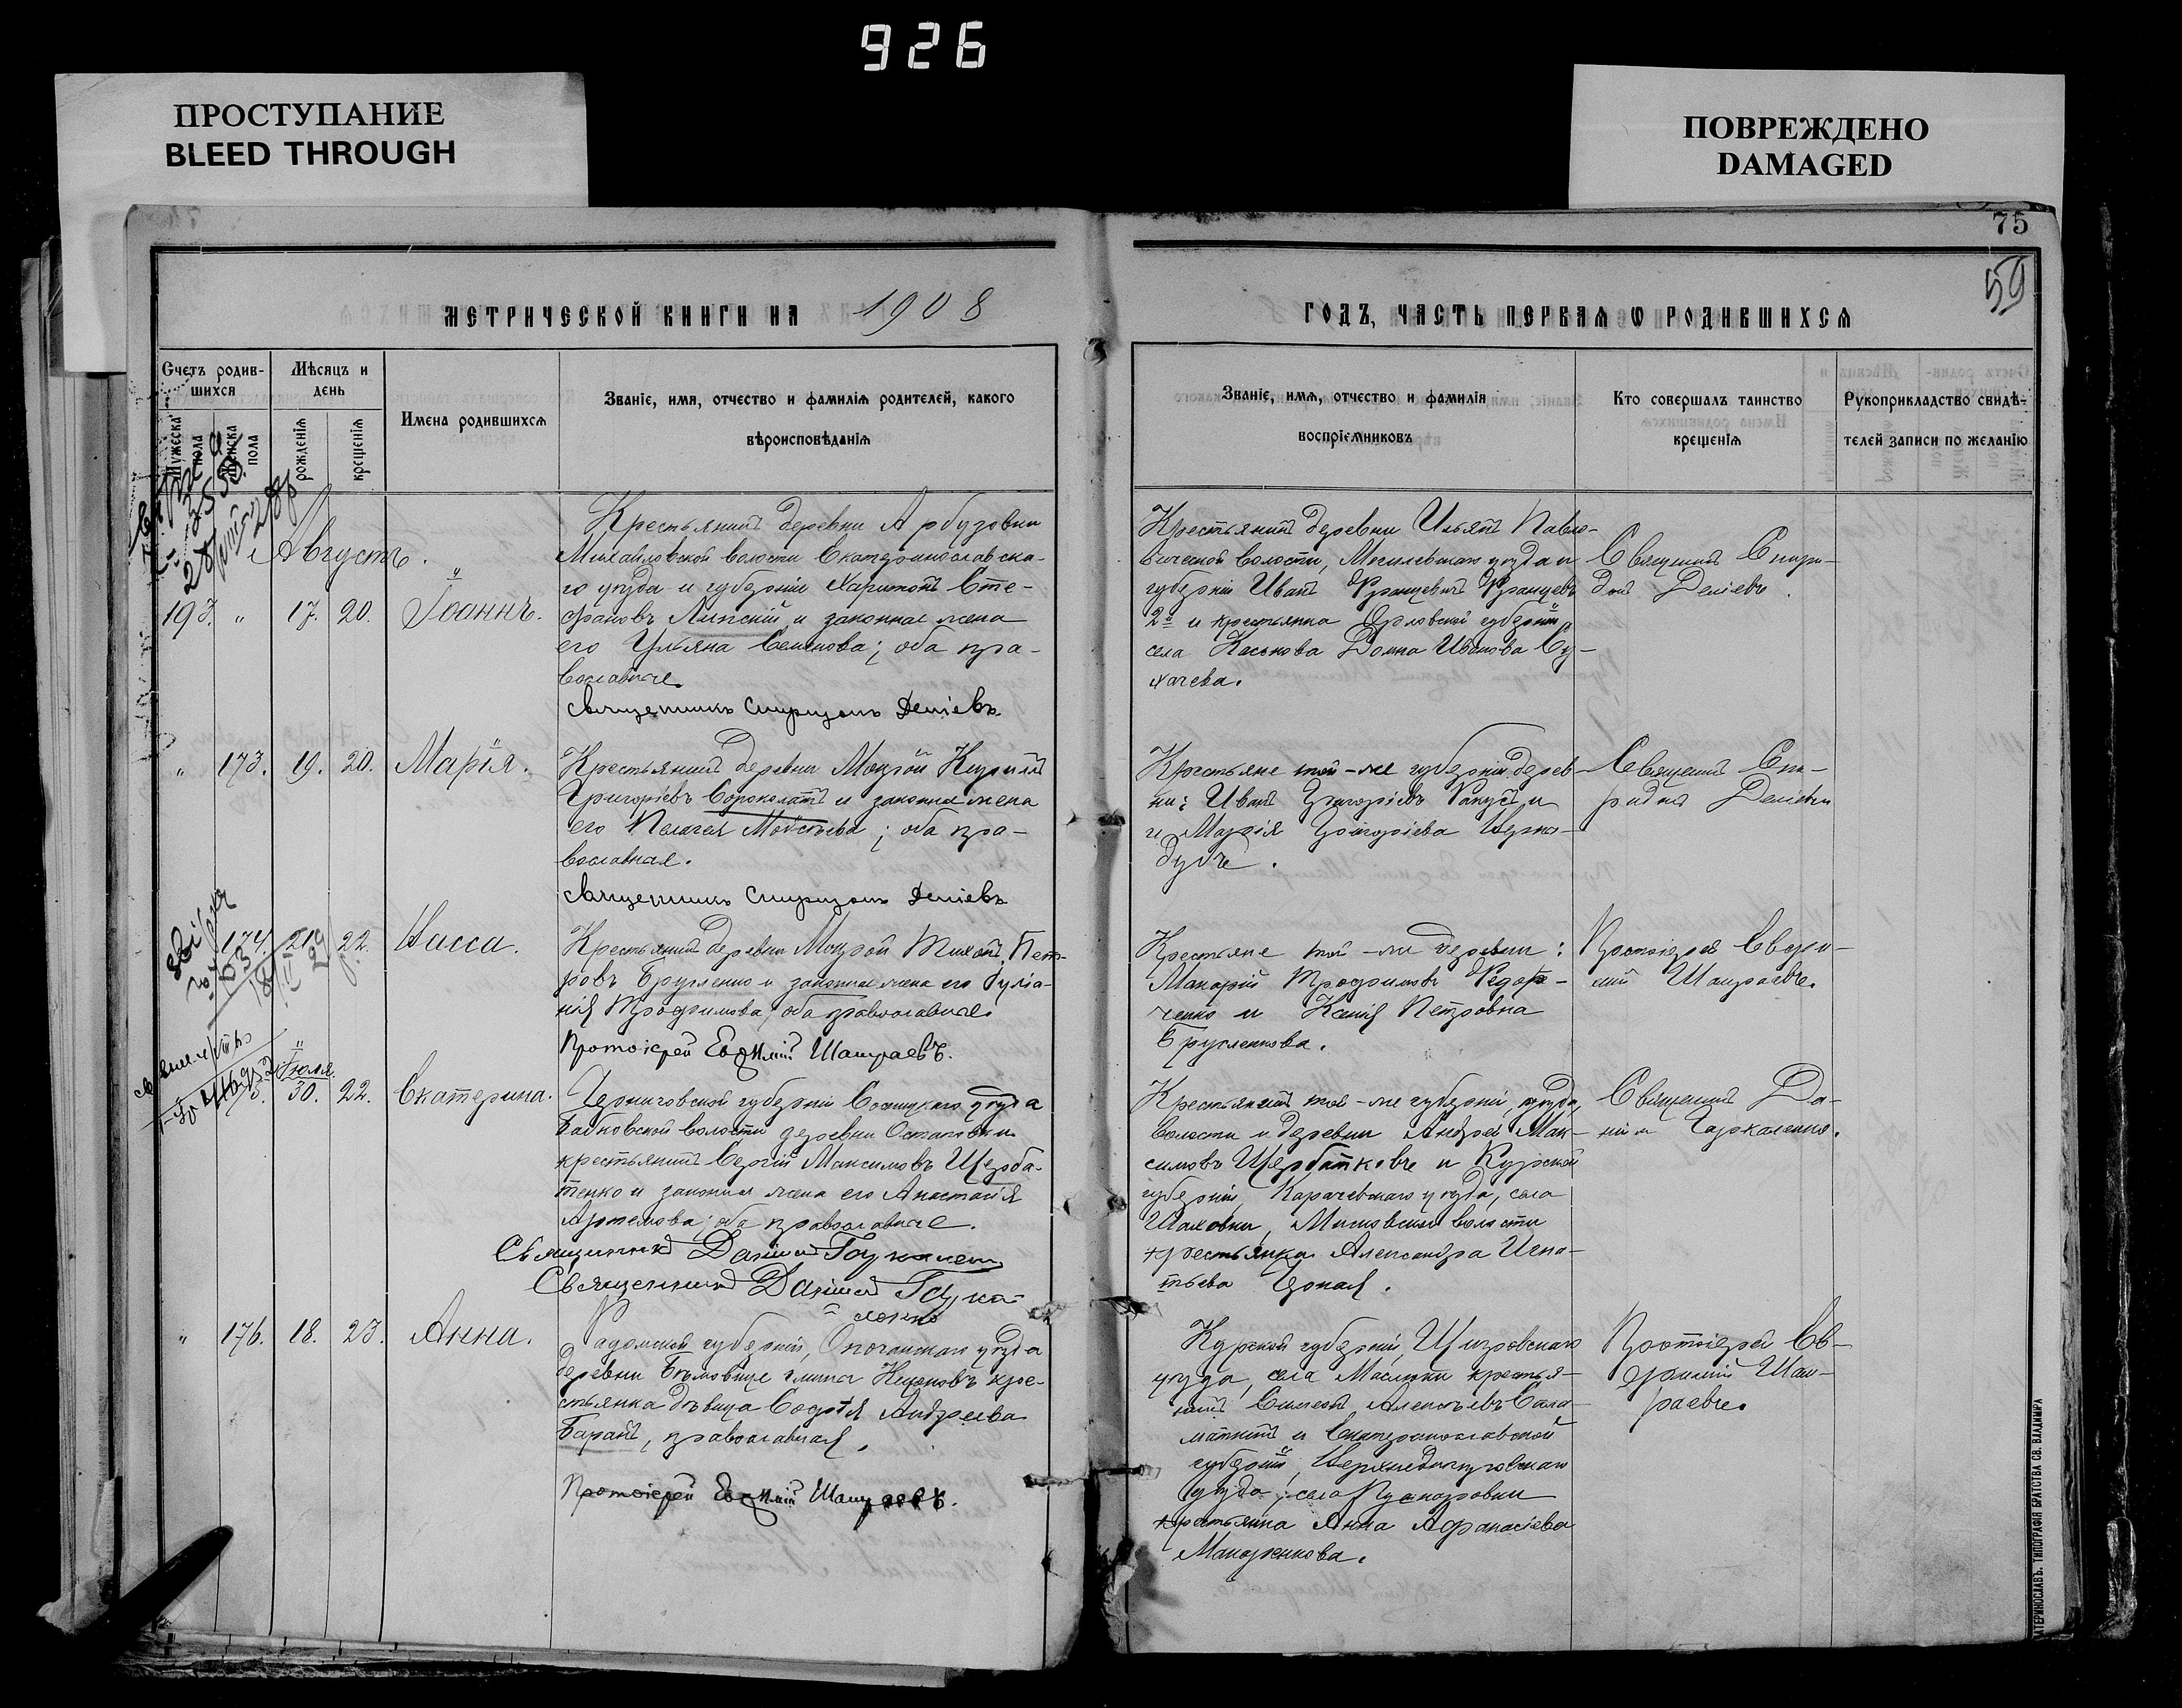 926
ПРОСТУПАНИЕ
BLEED THROUGH
ПОВРЕЖДЕНО
DAMAGED
75
59
МЕТРИЧЕСКОЙ КНИГИ НА 1908
ГОДЪ, ЧАСТЬ ПЕРВАЯ Ѡ РОДИВШИХСЯ
Счетъ родив-
шихся
Мужеска пола
Женска пола
Мѣсяцъ и
день
рожденія
крещенія
Имена родившихся
Званіе, имя, отчество и фамилія родителей, какого
вѣроисповѣданія
Званіе, имя, отчество и фамилія
воспріемниковъ
Кто совершалъ таинство
крещенія
Рукоприкладство свидѣ-
телей записи по желанію
Августъ.
193. " 17. 20. Іоаннъ.
Крестьянинъ деревни Арбузовки
Михайловской волости Екатеринославска-
го уѣзда и губерніи Харитонъ Сте-
фановъ Липскій и законная жена
его Ульяна Семенова; оба пра-
вославные.
Священникъ Спиридонъ Деліевъ
Крестьянинъ деревни Павло-
вичской волости, Могилевскаго уѣзда и
губерніи Иванъ Францевичъ Францевъ
2й и крестьянка Орловской губерніи,
села Каськова Домна Иванова Су-
хачева.
Священникъ Спири-
донъ Деліевъ.
" 173. 19. 20. Марія.
Крестьянинъ деревни Мокрой Кириллъ
Григоріевъ Сороколатъ и законная жена
его Пелагея Моисѣева; оба пра-
вославные.
Священникъ Спиридонъ Деліевъ
Крестьяне той-же губерніи дерев-
ни: Иванъ Григоріевъ
и Марія Григоріева Черно-
дубъ.
Священникъ Спи-
ридонъ Деліевъ
174. 21. 22. Васса.
Крестьянинъ деревни Мокрой Тихонъ Пет-
ровъ Брусленко и законная жена его Іулiа-
нія Трофимова, оба православные.
Протоіерей Евфимій Шаураевъ.
Крестьяне той-же деревни:
Макарій Трофимовъ Федор-
ченко и Ксенія Петровна
Брусленкова.
Протоіерей Евфи-
мій Шаураевъ.
Іюля.
175. 30. 22. Екатерина.
Черниговской губерніи Сосницкаго уѣзда
волости деревни
крестьянинъ Сергій Максимовъ Щерба-
тенко и законная жена его Анастасія
Артемова; оба православные.
Священникъ Даніилъ Гаркален
Священникъ Даніилъ Гарка-
ленко
Крестьянинъ той-же губерніи, уѣзда,
волости и деревни Андрей Мак-
симовъ и Курской
губерніи, Карачевскаго уѣзда, села
Шаховки, волости
крестьянка Александра Игна-
тьева
Священникъ Да-
ніилъ Гаркаленко.
" 176. 18. 23. Анна.
Радомской губерніи, Опочанскаго уѣзда
деревни гмина кре-
стьянка дѣвица Софія Андреева
Баранъ, православная.
Протоіерей Евфимій Шаураевъ.
Курской губерніи, Щигровскаго
уѣзда, села Маслики крестья-
нинъ Симеонъ Алексѣевъ Сала-
маткинъ и Екатеринославской
губерніи, Верхнеднѣпровскаго
уѣзда, села Пушкаровки
крестьянка Анна Афанасіева
Макаренкова.
Протоіерей Ев-
фимій Шау-
раевъ.
ЕКАТЕРИНОСЛАВЪ. ТИПОГРАФІЯ БРАТСТВА СВ. ВЛАДИМІРА